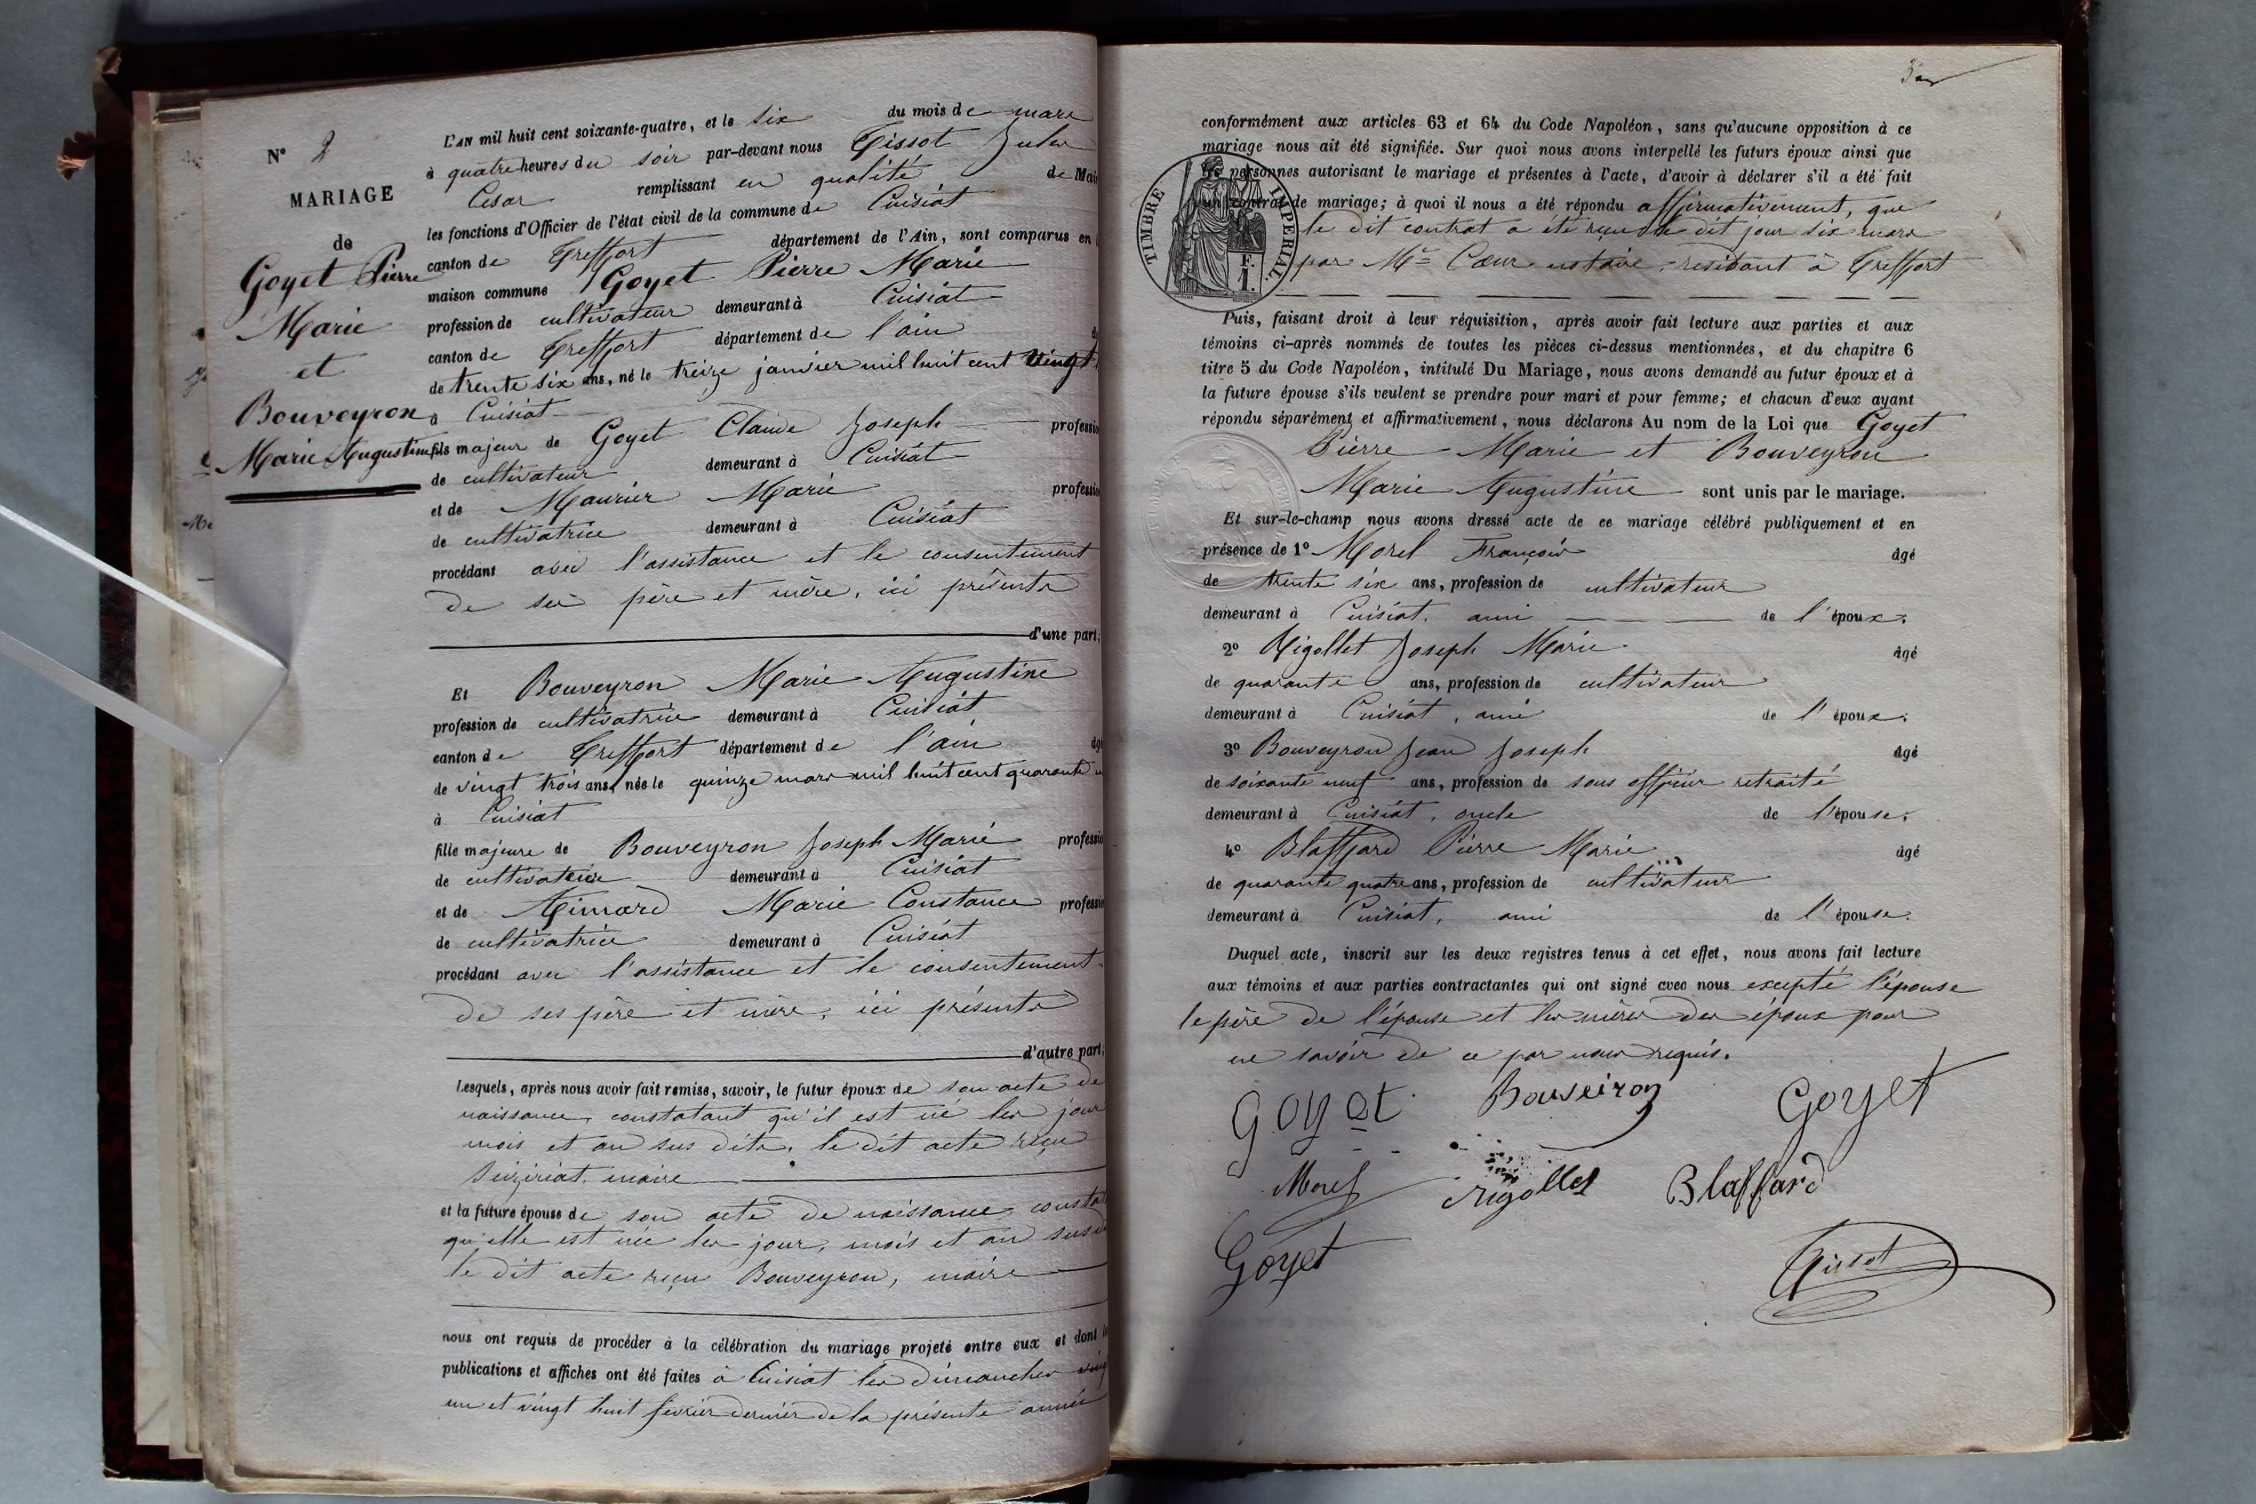 N° 2
MARIAGE
de
Goyet Pierre
Marie
et
Bouveyron
Marie Augustine
L'AN mil huit cent soixante-quatre, et le six du mois de mars
à quatre heures du soir par-devant nous Tissot Jules
César remplissant en qualité de Mai
les fonctions d'Officier de l'état civil de la commune de Cuisiat
canton de Treffort département de l'Ain, sont comparus en
maison commune Goyet Pierre Marie
profession de cultivateur demeurant à Cuisiat
canton de Treffort département de l'ain
de trente six ans, né le treize janvier mil huit cent vingt
à Cuisiat
fils majeur de Goyet Claude Joseph professio
de cultivateur demeurant à Cuisiat
et de Maurier Marie professio
de cultivatrice demeurant à Cuisiat
procédant avec l'assistance et le consentement
de ses père et mère, ici présents
d'une part,
Et Bouveyron Marie Augustine
profession de cultivatrice demeurant à Cuisiat
canton de Treffort département de l'ain âgé
de vingt trois ans, née le quinze mars mil huit cent quarante
à Cuisiat
fille majeure de Bouveyron Joseph Marie professio
de cultivateur demeurant à Cuisiat
et de Aimard Marie Constance professio
de cultivatrice demeurant à Cuisiat
procédant avec l'assistance et le consentement
de ses père et mère, ici présents
d'autre part,
Lesquels, après nous avoir fait remise, savoir, le futur époux de son acte de
naissance, constatant qu'il est né les jour
mois et an sus dits, le dit acte reçu
maire
et la future épouse de son acte de naissance, consta
qu'elle est née les jour, mois et an sus
le dit acte reçu Bouveyron, maire
nous ont requis de procéder à la célébration du mariage projeté entre eux et dont
publications et affiches ont été faites à Cuisiat les dimanches ving
un et vingt huit février dernier de la présente année
conformément aux articles 63 et 64 du Code Napoléon, sans qu'aucune opposition à ce
mariage nous ait été signifiée. Sur quoi nous avons interpellé les futurs époux ainsi que
les personnes autorisant le mariage et présentes à l'acte, d'avoir à déclarer s'il a été fait
un contrat de mariage; à quoi il nous a été répondu affirmativement, que
le dit contrat a été reçu le dit jour six mars
par Me Cœur notaire, résidant à Treffort
TIMBRE IMPÉRIAL.
F.
1.
Puis, faisant droit à leur réquisition, après avoir fait lecture aux parties et aux
témoins ci-après nommés de toutes les pièces ci-dessus mentionnées, et du chapitre 6
titre 5 du Code Napoléon, intitulé Du Mariage, nous avons demandé au futur époux et à
la future épouse s'ils veulent se prendre pour mari et pour femme; et chacun d'eux ayant
répondu séparément et affirmativement, nous déclarons Au nom de la Loi que Goyet
Pierre Marie et Bouveyron
Marie Augustine sont unis par le mariage.
Et sur-le-champ nous avons dressé acte de ce mariage célébré publiquement et en
présence de 1° Morel François âgé
de trente six ans, profession de cultivateur
demeurant à Cuisiat, ami de l'époux.
2° Rigollet Joseph Marie âgé
de quarante ans, profession de cultivateur
demeurant à Cuisiat, ami de l'époux.
3° Bouveyron Jean Joseph âgé
de soixante neuf ans, profession de sous officier retraité
demeurant à Cuisiat, oncle de l'épouse.
4° Blaffard Pierre Marie âgé
de quarante quatre ans, profession de cultivateur
demeurant à Cuisiat, ami de l'épouse.
Duquel acte, inscrit sur les deux registres tenus à cet effet, nous avons fait lecture
aux témoins et aux parties contractantes qui ont signé avec nous excepté l'épouse
le père de l'épouse et les mères des époux pour
ne savoir de ce par nous requis.
Goyet Bouveiron Goyet
Morel Rigollet Blaffard
Goyet Tissot